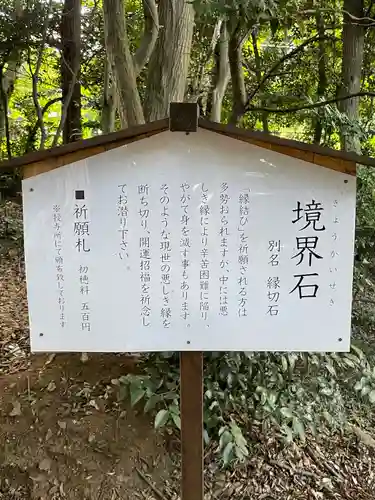 境界石
きょうかいせき
別名 縁切石
「縁結び」を祈願される方は
多勢おられますが、中には悪
しき縁により辛苦困難に陥り、
やがて身を滅す事もあります。
そのような現世の悪しき縁を
断ち切り、開運招福を祈念し
てお潜り下さい。
■祈願札 初穂料 五百円
※授与所にて頒布致しております